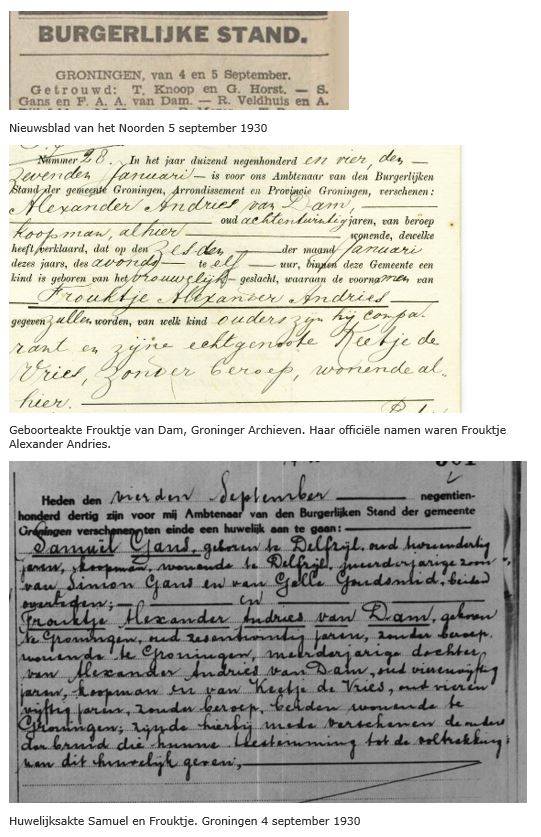 BURGERLIJKE STAND.
GRONINGEN, van 4 en 5 September.
Getrouwd: T. Knoop en G. Horst. — S.
Gans en F. A. A. van Dam. — R. Veldhuis en A.
Nieuwsblad van het Noorden 5 september 1930
Nummer 28. In het jaar duizend negenhonderd en vier, den
zevenden Januari is voor ons Ambtenaar van den Burgerlijken
Stand der gemeente Groningen, Arrondissement en Provincie Groningen, verschenen:
Alexander Andries van Dam,
oud achtentwintig jaren, van beroep
koopman, alhier wonende, dewelke
heeft verklaard, dat op den zesden der maand Januari
dezes jaars, des avonds te elf uur, binnen deze Gemeente een
kind is geboren van het vrouwelijk geslacht, waaraan de voornamen van
Frouktje Alexander Andries
gegeven zullen worden, van welk kind ouders zijn hij compa-
rant en zijne echtgenoote Keetje de
Vries, zonder beroep, wonende al-
hier.
Geboorteakte Frouktje van Dam, Groninger Archieven. Haar officiële namen waren Frouktje
Alexander Andries.
Heden den vierden September negentien-
honderd dertig zijn voor mij Ambtenaar van den Burgerlijken Stand der gemeente
Groningen verschenen ten einde een huwelijk aan te gaan:
Samuel Gans, geboren te Delfzijl, oud tweeendertig
jaren, koopman, wonende te Delfzijl, meerderjarige zoon
van Simon Gans en van Goudsmid, beiden
overleden; en
Frouktje Alexander Andries van Dam, geboren
te Groningen, oud zesentwintig jaren, zonder beroep,
wonende te Groningen, meerderjarige dochter
van Alexander Andries van Dam, oud vierenvijftig
jaren, koopman en van Keetje de Vries, oud vieren
vijftig jaren, zonder beroep, beiden wonende te
Groningen; zijnde hierbij mede verschenen de ouders
der bruid die hunne toestemming tot de voltrekking
van dit huwelijk geven,
Huwelijksakte Samuel en Frouktje. Groningen 4 september 1930